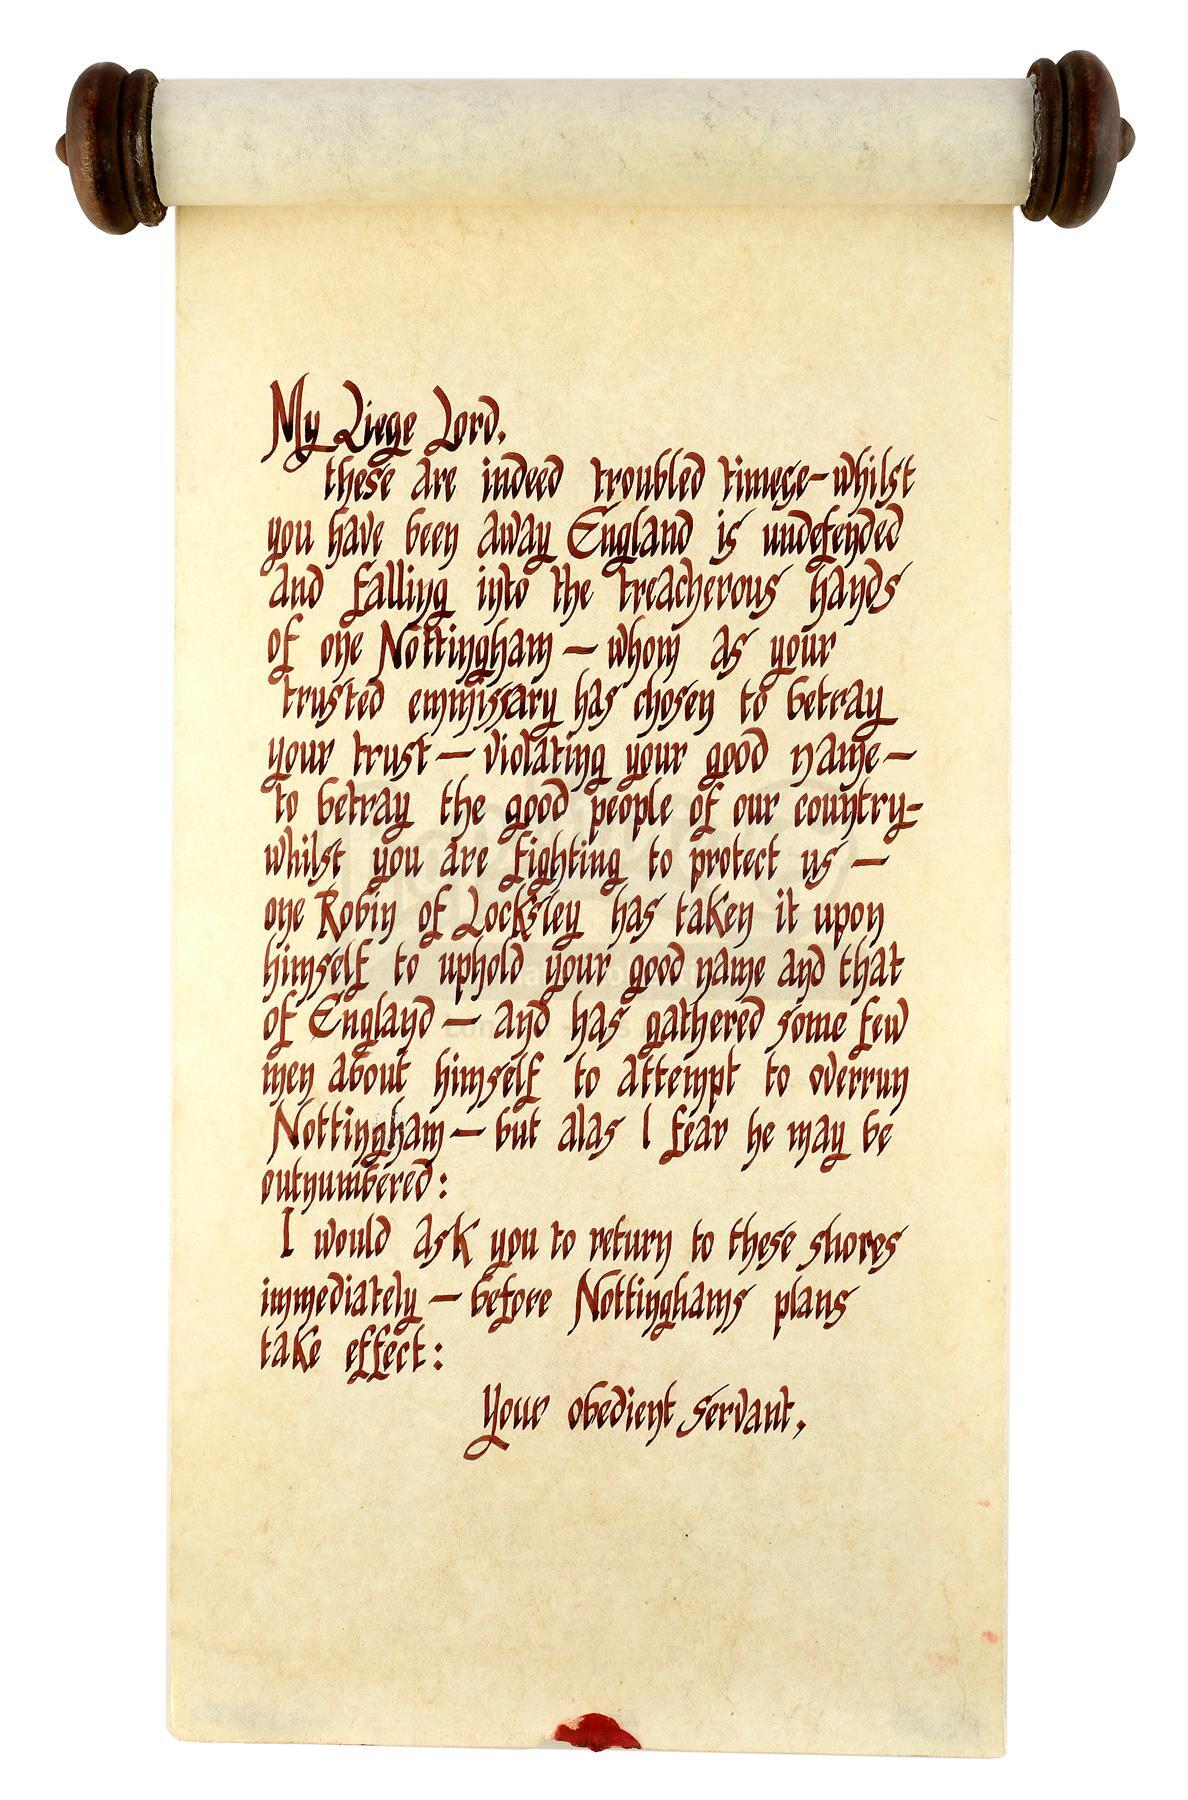 My Liege Lord.
these are indeed troubled timese - whilst
you have been away England is undefended
and falling into the treacherous hands
of one Nottingham — whom as your
trusted emmissary has chosen to betray
your trust — violating your good name —
to betray the good people of our country -
whilst you are fighting to protect us —
one Robin of Locksley has taken it upon
himself to uphold your good name and that
of England — and has gathered some few
men about himself to attempt to overrun
Nottingham — but alas I fear he may be
outnumbered :
I would ask you to return to these shores
immediately — before Nottinghams plans
take effect :
Your obedient servant,